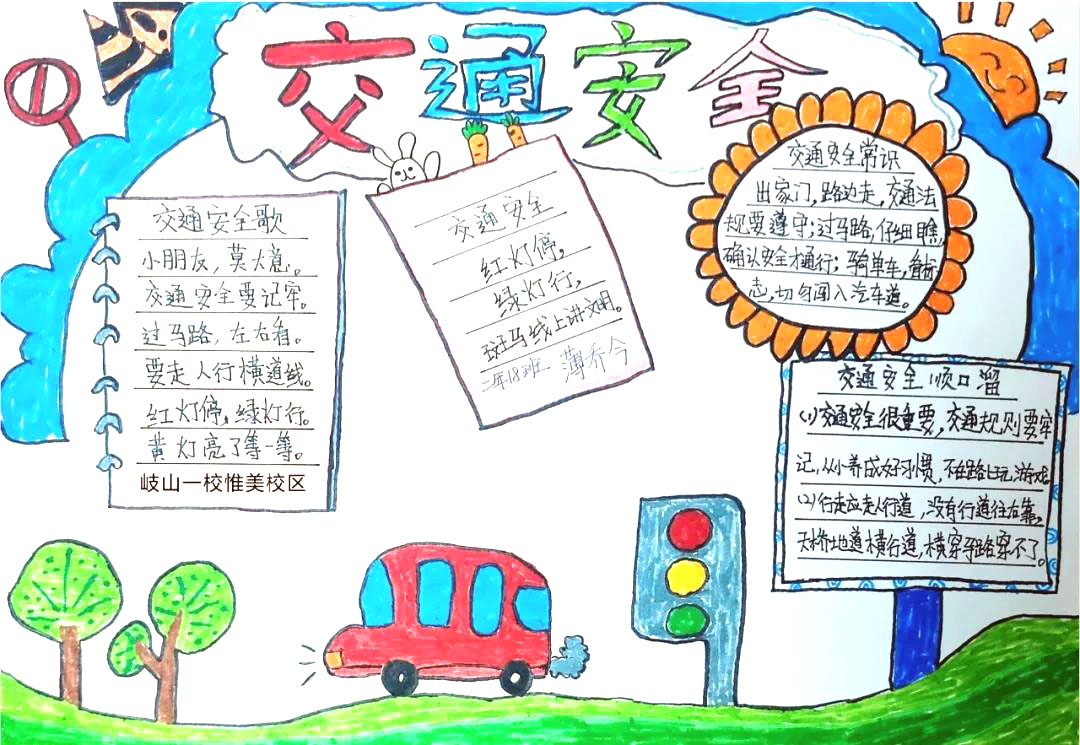 交通安全
交通安全歌
小朋友，莫大意。
交通安全要记牢。
过马路，左右看。
要走人行横道线。
红灯停，绿灯行。
黄灯亮了等一等。
岐山一校惟美校区
交通安全
红灯停，
绿灯行，
斑马线上讲文明。
二年18班 薄乔今
交通安全常识
出家门，路边走，交通法
规要遵守；过马路，仔细瞧，
确认安全才通行；骑单车，看标
志，切勿闯入汽车道。
交通安全顺口溜
(1)交通安全很重要，交通规则要牢
记，从小养成好习惯，不在路上玩游戏
(2)行走应走人行道，没有行道往右靠，
天桥地道横行道，横穿马路穿不了。